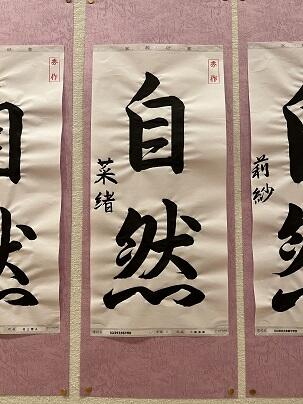 自然
菜緒
秀作
自然
莉紗
秀作
自然